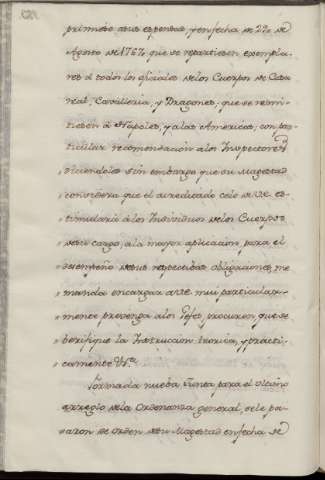 primió à sus expensas, y en fecha de 27,, de
Agosto de 1767,, que se repartiesen exempla-
res à todos los oficiales de los Cuerpos de Casa
real, Cavalleria, y Dragones; que se remi-
tiesen à Napoles, y a las Americas, con par-
ticular recomendacion a los Inspectores,
diciendoles sin embargo que su Magestad
considera que el acreditado celo de V.E. es-
timularà à los Individuos de los Cuerpos
de su cargo, a la mayor aplicacion, para el
desempeño de sus respectivas obligaciones, me
manda encargar a V.E. mui particular-
mente prevenga a los Gefes, procuren que se
berifique la Instruccion teorica, y practi-
camente &.ª
Formada nueba Junta para el ultimo
arreglo de la Ordenanza general, se le pa-
saron de orden de su Magestad en fecha de